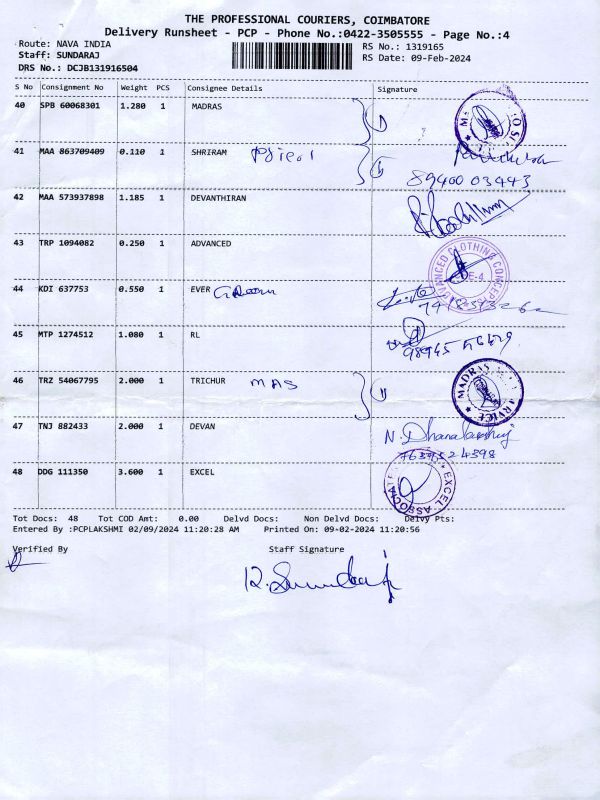 THE PROFESSIONAL COURIERS, COIMBATORE
Delivery Runsheet - PCP - Phone No.:0422-3505555 - Page No.:4
Route: NAVA INDIA RS No.: 1319165
Staff: SUNDARAJ RS Date: 09-Feb-2024
DRS No.: DCJB131916504
S No Consignment No Weight PCS Consignee Details Signature
40 SPB 60068301 1.280 1 MADRAS
41 MAA 863709409 0.110 1 SHRIRAM
8940003443
42 MAA 573937898 1.185 1 DEVANTHIRAN
43 TRP 1094082 0.250 1 ADVANCED
ADVANCED CLOTHING CONCEPTS
44 KDI 637753 0.550 1 EVER
45 MTP 1274512 1.080 1 RL
46 TRZ 54067795 2.000 1 TRICHUR MAS
MADRAS SERVICE
47 TNJ 882433 2.000 1 DEVAN N. Dhanalakshmi
7639524598
48 DDG 111350 3.600 1 EXCEL
EXCEL ASSOCIATES
Tot Docs: 48 Tot COD Amt: 0.00 Delvd Docs: Non Delvd Docs: Delvy Pts:
Entered By :PCPLAKSHMI 02/09/2024 11:20:28 AM Printed On: 09-02-2024 11:20:56
Verified By Staff Signature
R. Sundaraj